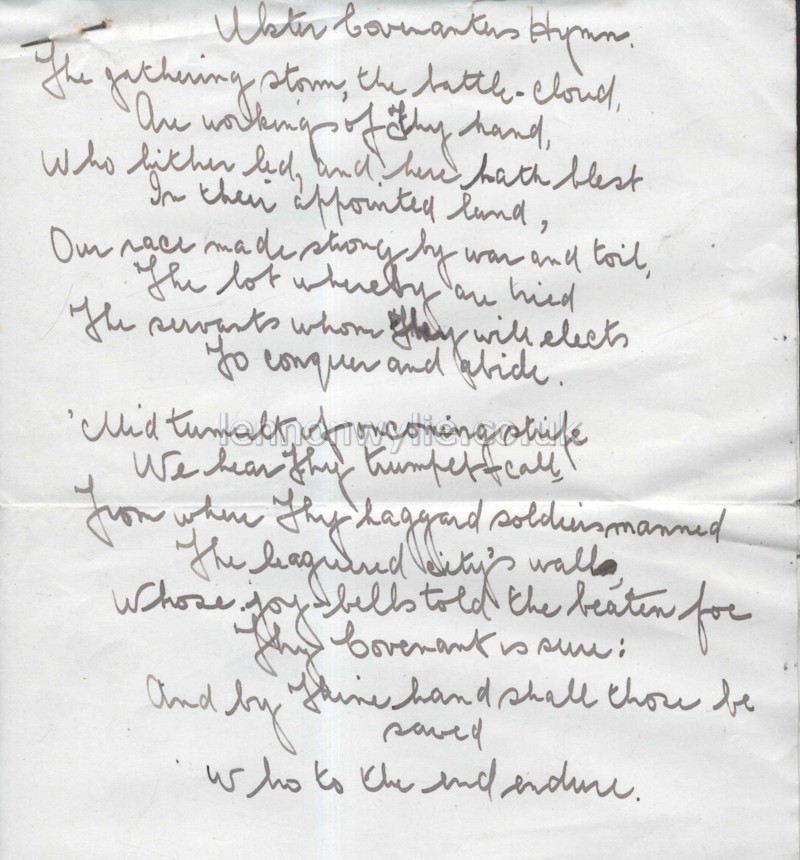 Ulster Covenanters Hymn.
The gathering storm, the battle-cloud,
Are workings of Thy hand,
Who hither led, and here hath blest
In their appointed land,
Our race made strong by war and toil,
The lot whereby are tried
The servants whom Thy will elects
To conquer and abide.
'Mid tumult of uncoming strife
We hear Thy trumpet-call,
From where Thy haggard soldiers manned
The leaguered city's walls,
Whose joy-bells told the beaten foe
Thy Covenant is sure:
And by Thine hand shall those be
saved
Who to the end endure.
lennonwylie.co.uk